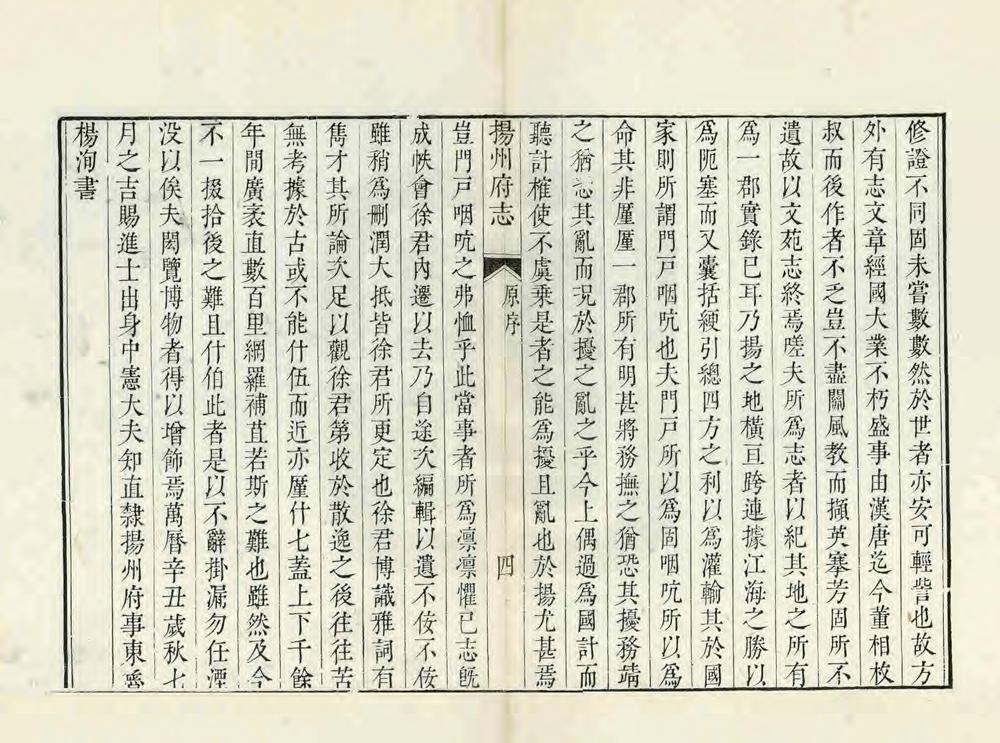 修證不同固未嘗數數然於世者亦安可輕訾也故方
外有志文章經國大業不朽盛事由漢唐迄今董相枚
叔而後作者不乏豈不盡關風教而擷英搴芳固所不
遺故以文苑志終焉嗟夫所為志者以紀其地之所有
為一郡實錄已耳乃揚之地橫亘跨連據江海之勝以
為阨塞而又囊括綆引總四方之利以為灌輸其於國
家則所謂門戸咽吭也夫門戸所以為固咽吭所以為
命其非厪厪一郡所有明甚將務撫之猶恐其擾務靖
之猶恐其亂而況於擾之亂之乎今上偶過為國計而
聽計榷使不虞乗是者之能為擾且亂也於揚尤甚焉
揚州府志 原序 四
豈門戸咽吭之弗恤乎此當事者所為凛凛懼已志旣
成帙會徐君內遷以去乃自途次編輯以遺不佞不佞
雖稍為刪潤大抵皆徐君所更定也徐君博識雅詞有
雋才其所論次足以觀徐君第收於散逸之後往往苦
無考據於古或不能什伍而近亦厪什七蓋上下千餘
年間廣袤直數百里網羅補苴若斯之難也雖然及今
不一掇拾後之難且什伯此者是以不辭掛漏勿任湮
没以俟夫閎覽博物者得以增飾焉萬曆辛丑歲秋七
月之吉賜進士出身中憲大夫知直隸揚州府事東魯
楊洵書